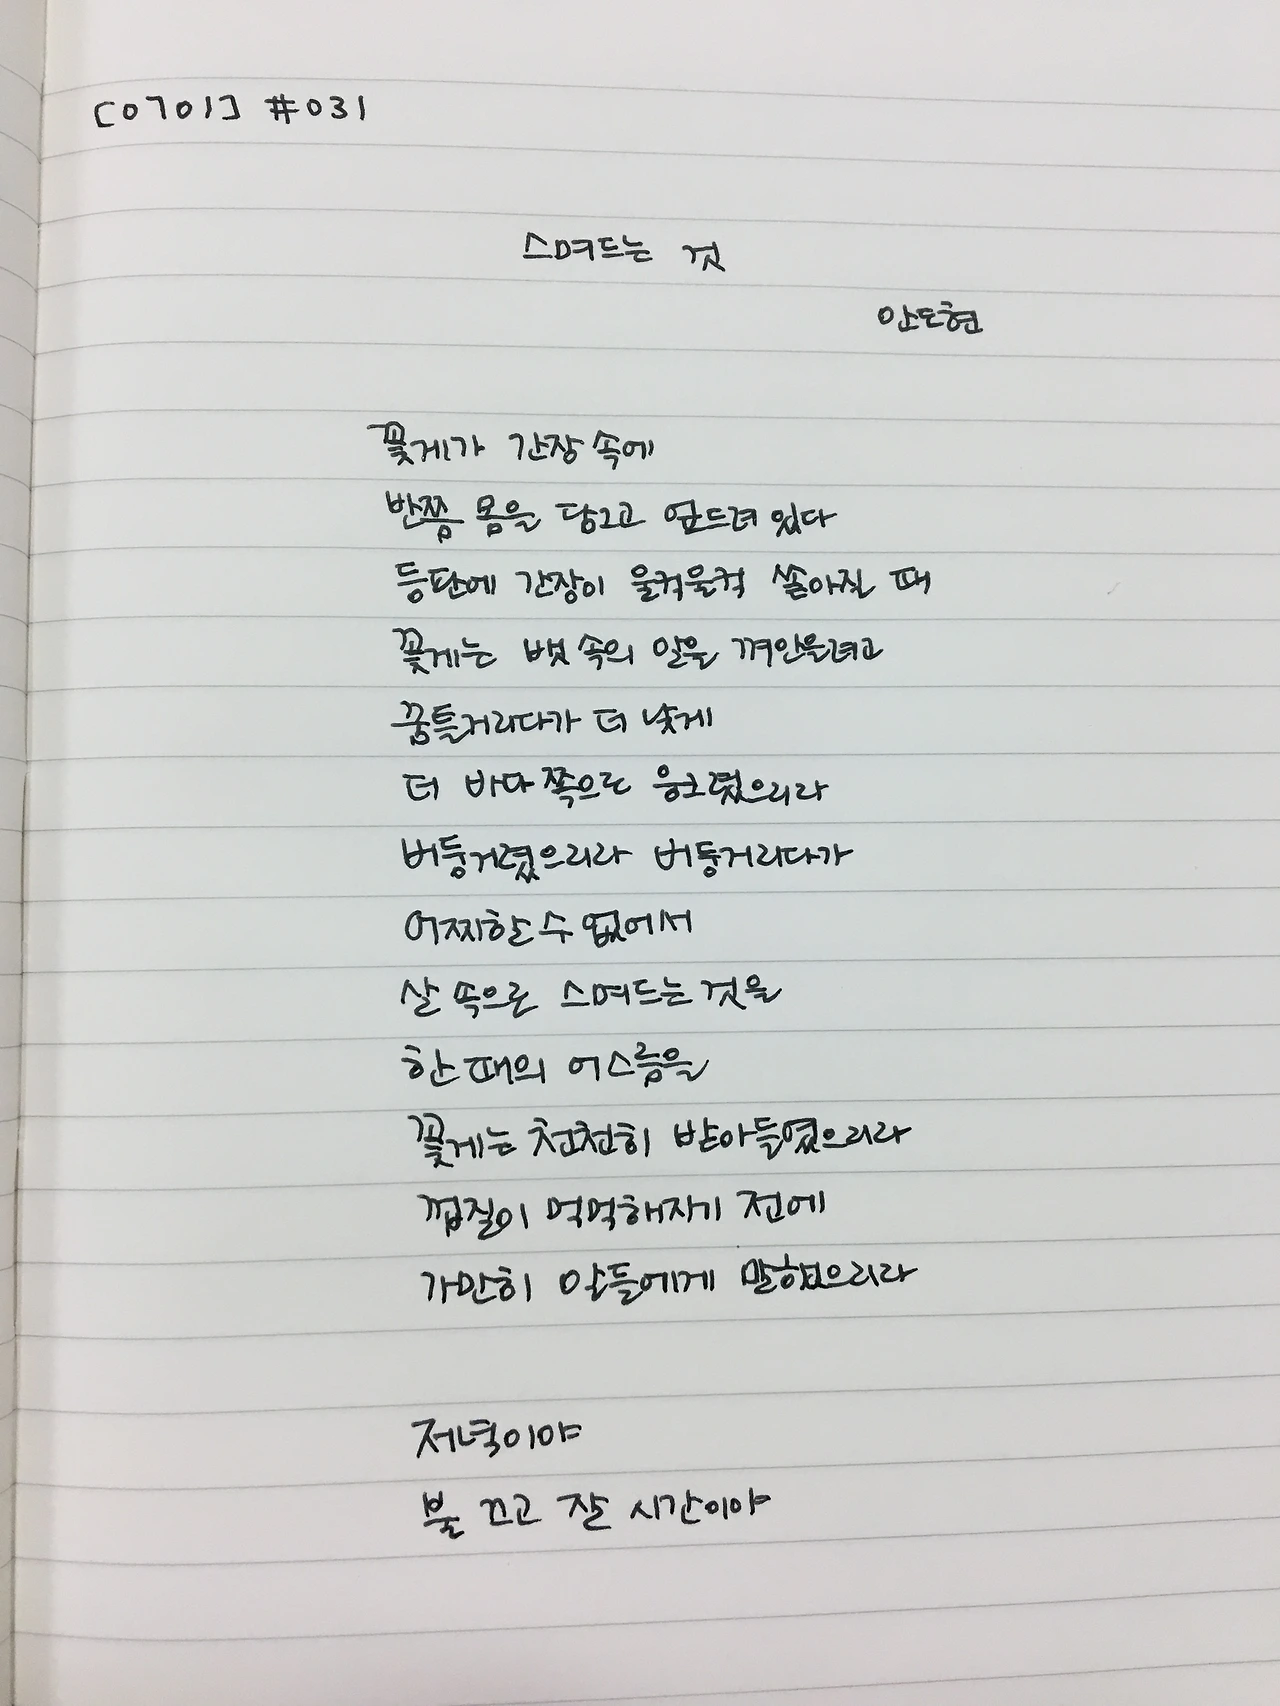 [0701] #031
스며드는 것
안도현
꽃게가 간장 속에
반쯤 몸을 담그고 엎드려 있다
등판에 간장이 울컥울컥 쏟아질 때
꽃게는 뱃속의 알을 껴안으려고
꿈틀거리다가 더 낮게
더 바다 쪽으로 웅크렸으리라
버둥거렸으리라 버둥거리다가
어찌할 수 없어서
살 속으로 스며드는 것을
한 때의 어스름을
꽃게는 천천히 받아들였으리라
껍질이 먹먹해지기 전에
가만히 알들에게 말했으리라
저녁이야
불 끄고 잘 시간이야